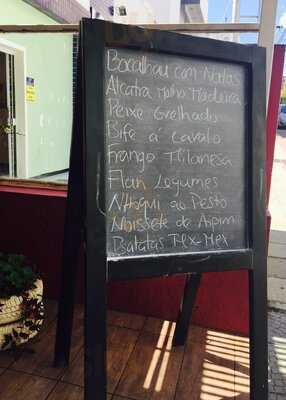 Bacalhau com Natas
Alcatra Molho Madeira
Peixe Grelhado
Bife á Cavalo
Frango Milanesa
Flan Legumes
Nhoqui ao Pesto
Moissete de Aipim
Batatas Tex-Mex